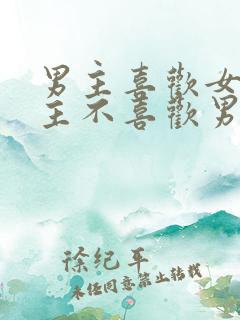 男主喜歡女
主不喜歡男
徐纪平
未经同意禁止转载